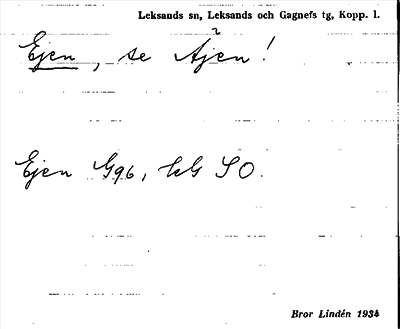 Leksands sn, Leksands och Gagnefs tg, Kopp. l.
Ejen, se Åjen!
Ejen G96, kG SO.
Bror Lindén 1934